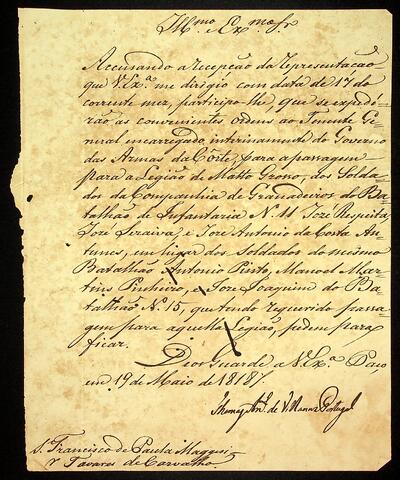 Illmo. e Exmo. Sr.
Accusando a recepção da representação
que V. Exa. me dirigio com data de 17 do
corrente mez, participo-lhe, que se expedi-
rão as convenientes ordens ao Tenente Ge-
neral encarregado interinamente do Governo
das Armas da Corte, para a passagem
para a Legião de Matto Grosso, dos Solda-
dos da Companhia de Granadeiros do Ba-
talhão de Infantaria N. 11 José
José Saraiva, e José Antonio da Costa An-
tunes, em lugar dos Soldados do mesmo
Batalhão Antonio Pinto, Manoel Mar-
tins Pinheiro, e José Joaquim do Ba-
talhão N. 15, que tendo requerido passa-
gem para aquella Legião, pedem para
ficar.
Deos Guarde a V. Exa. Paço
em 19 de Maio de 1818
Thomaz Anto. de Villanova Portugal
S. Francisco de Paula Maggesi
Tavares de Carvalho.